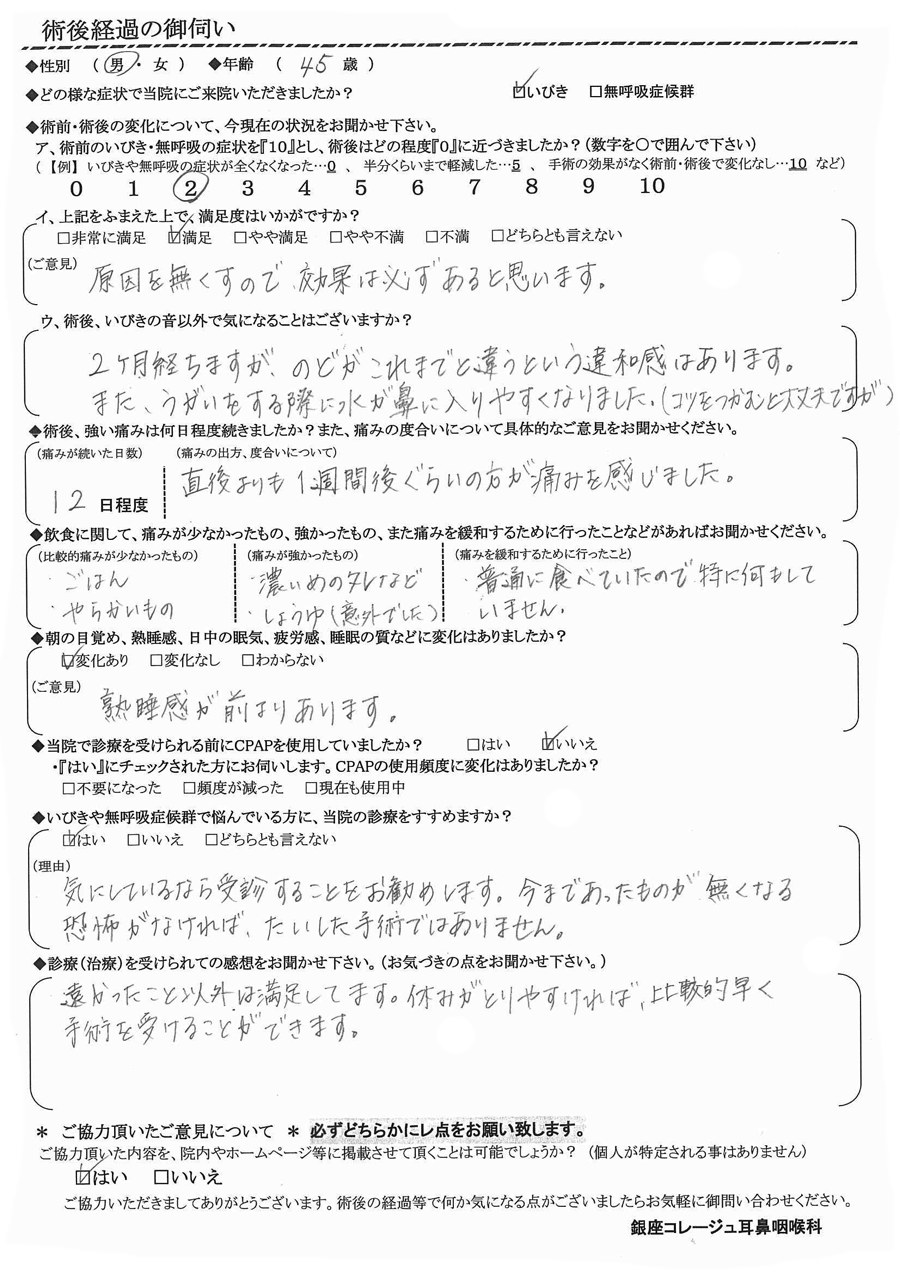 術後経過の御伺い
◆性別 (男・女) ◆年齢 (45歳)
◆どの様な症状で当院にご来院いただきましたか? ☑いびき □無呼吸症候群
◆術前・術後の変化について、今現在の状況をお聞かせ下さい。
ア、術前のいびき・無呼吸の症状を『10』とし、術後はどの程度『0』に近づきましたか?(数字を〇で囲んで下さい)
(【例】いびきや無呼吸の症状が全くなくなった…0 、 半分くらいまで軽減した…5 、 手術の効果がなく術前・術後で変化なし…10 など)
0 1 2 3 4 5 6 7 8 9 10
イ、上記をふまえた上で、満足度はいかがですか?
□非常に満足 ☑満足 □やや満足 □やや不満 □不満 □どちらとも言えない
(ご意見)
原因を無くすので、効果は必ずあると思います。
ウ、術後、いびきの音以外で気になることはございますか?
2ヶ月経ちますが、のどがこれまでと違うという違和感はあります。
また、うがいをする際に水が鼻に入りやすくなりました。(コツをつかむと大丈夫ですが)
◆術後、強い痛みは何日程度続きましたか?また、痛みの度合いについて具体的なご意見をお聞かせください。
(痛みが続いた日数) (痛みの出方、度合いについて)
12日程度 直後よりも1週間後ぐらいの方が痛みを感じました。
◆飲食に関して、痛みが少なかったもの、強かったもの、また痛みを緩和するために行ったことなどがあればお聞かせください。
(比較的痛みが少なかったもの) (痛みが強かったもの) (痛みを緩和するために行ったこと)
・ごはん ・濃いめのタレなど ・普通に食べていたので特に何もして
・やらかいもの ・しょうゆ(意外でした) いません。
◆朝の目覚め、熟睡感、日中の眠気、疲労感、睡眠の質などに変化はありましたか?
☑変化あり □変化なし □わからない
(ご意見)
熟睡感が前よりあります。
◆当院で診療を受けられる前にCPAPを使用していましたか? □はい ☑いいえ
・『はい』にチェックされた方にお伺いします。CPAPの使用頻度に変化はありましたか?
□不要になった □頻度が減った □現在も使用中
◆いびきや無呼吸症候群で悩んでいる方に、当院の診療をすすめますか?
☑はい □いいえ □どちらとも言えない
(理由)
気にしているなら受診することをお勧めします。今まであったものが無くなる
恐怖がなければ、たいした手術ではありません。
◆診療(治療)を受けられての感想をお聞かせ下さい。(お気づきの点をお聞かせ下さい。)
遠かったこと以外は満足してます。休みがとりやすければ、比較的早く
手術を受けることができます。
＊ ご協力頂いたご意見について ＊ 必ずどちらかにレ点をお願い致します。
ご協力頂いた内容を、院内やホームページ等に掲載させて頂くことは可能でしょうか? (個人が特定される事はありません)
☑はい □いいえ
ご協力いただきましてありがとうございます。術後の経過等で何か気になる点がございましたらお気軽に御問い合わせください。
銀座コレージュ耳鼻咽喉科